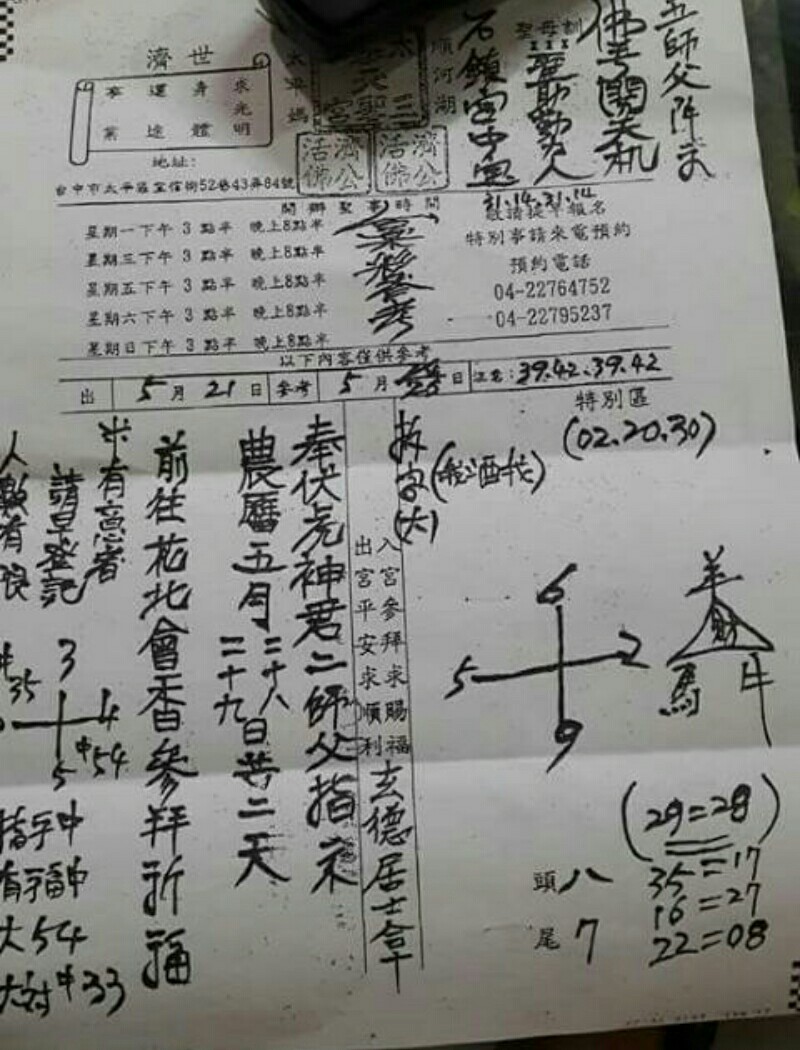 五師父降示
佛手開天机
聖母訓
聖助勤人
石鎮宮中
31.14.31.14
順河湖
太平媽
濟世
求光明
身體
運途
事業
濟公活佛
濟公活佛
地址:
台中市太平區宜信街52巷43弄84號
開辦聖事時間
星期一下午 3 點半 晚上8點半
星期三下午 3 點半 晚上8點半
星期五下午 3 點半 晚上8點半
星期六下午 3 點半 晚上8點半
星期日下午 3 點半 晚上8點半
敬請提早報名
特別事請來電預約
預約電話
04-22764752
04-22795237
以下內容僅供參考
出 5 月 21 日 參考 5 月 日 39.42.39.42
特別區
(02.20.30)
拆字(大)
入宮參拜求賜福
出宮平安求順利
玄德居士拿
奉伏虎神君二師父指示
農曆五月二十八二十九日共二天
前往花北會香參拜祈福
※有意者
請早登記
人數有限
6
5 2
9
羊
財
馬 牛
35
3
4
5
54
指手中
有手福中
大54
33
(29=28)
35=17
16=27
22=08
頭 八
尾 7